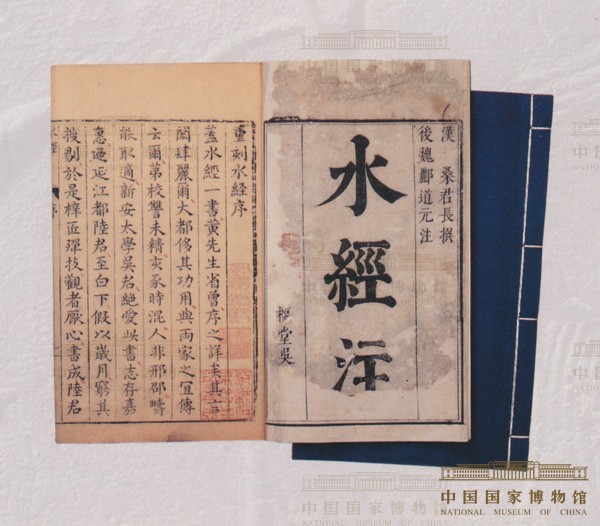 漢 桑君長撰
後魏酈道元注
水經注
堂吳
重刻水經序
蓋水經一書黃先生省曾序之詳矣其言
閎肆麗爾大都侈其功用與兩家之宜傳
云爾第校讐未精亥豕時混人非邢邵疇
能取適新安太學吳君絕愛此書志存嘉
惠迺延江都陸君至白下假以歲月窮其
搜剔於是梓匠殫技觀者厭心書成陸君
序
中国国家博物馆
NATIONAL MUSEUM OF CHINA